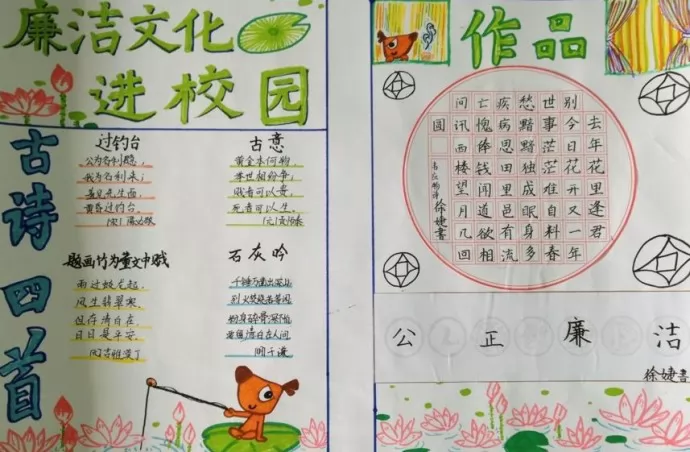 廉洁文化
进校园
古诗四首
过钓台
公为名利隐,
我为名利来;
羞见先生面,
黄昏过钓台。
古意
举世相纷争;
贱者可以贵,
死者可以生。
雨过蛟龙起,
风生翡翠寒,
但存清白在,
日日是平安。
石灰吟
千锤万凿出深山
烈火焚烧若等闲
粉身碎骨浑不怕
要留清白在人间
明于谦
作品
去年花里逢君
别今日花开又一年
世事茫茫难自料春
愁黯黯独成眠身多
疾病思田里邑有流
亡愧俸钱闻道欲相
问讯西楼望月几回
圆
韦应物诗 徐婕书
公正廉洁
徐婕书